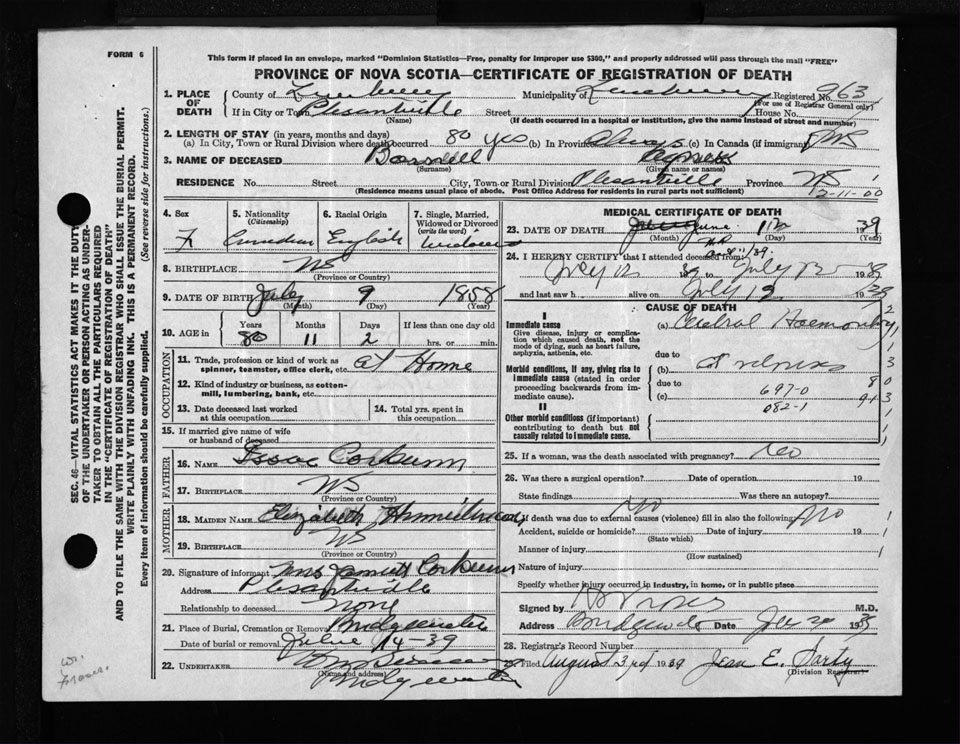 FORM 6
This form if placed in an envelope, marked "Dominion Statistics—Free, penalty for improper use $300," and properly addressed will pass through the mail "FREE"
PROVINCE OF NOVA SCOTIA—CERTIFICATE OF REGISTRATION OF DEATH
1. PLACE OF DEATH County of Lunenburg Municipality of Lunenburg Registered No. 963
(For use of Registrar General only)
If in City or Town Plesantville Street House No.
(Name) (If death occurred in a hospital or institution, give the name instead of street and number)
2. LENGTH OF STAY (in years, months and days)
(a) In City, Town or Rural Division where death occurred 80 yrs (b) In Province Always (c) In Canada (if immigrant)
3. NAME OF DECEASED
(Surname) (Given name or names)
RESIDENCE No. Street City, Town or Rural Division Plesantville Province NS
(Residence means usual place of abode. Post Office Address for residents in rural parts not sufficient)
12-11-00
4. Sex F
5. Nationality (Citizenship) Canadian
6. Racial Origin English
7. Single, Married, Widowed or Divorced (write the word) Widow
8. BIRTHPLACE NS
(Province or Country)
9. DATE OF BIRTH July 9 1858
(Month) (Day) (Year)
10. AGE in Years Months Days If less than one day
80 11 2 hrs. or min.
OCCUPATION
11. Trade, profession or kind of work as spinner, teamster, office clerk, etc. at Home
12. Kind of industry or business, as cotton-mill, lumbering, bank, etc.
13. Date deceased last worked at this occupation
14. Total yrs. spent in this occupation
15. If married give name of wife or husband of deceased
FATHER
16. NAME Isaac Corkum
17. BIRTHPLACE NS
(Province or Country)
MOTHER
18. MAIDEN NAME Elizabeth
19. BIRTHPLACE NS
(Province or Country)
20. Signature of informant Mrs Corkum
Address Plesantville
Relationship to deceased none
21. Place of Burial, Cremation or Removal Bridgewater
Date of burial or removal June 14-39
22. UNDERTAKER Bridgewater
(Name and address)
MEDICAL CERTIFICATE OF DEATH
23. DATE OF DEATH June 12 1939
(Month) (Day) (Year)
24. I HEREBY CERTIFY that I attended deceased from
July 12 39 to July 12 19
and last saw h alive on July 12 19
CAUSE OF DEATH
I
Immediate cause
Give disease, injury or complication which caused death, not the mode of dying, such as heart failure, asphyxia, asthenia, etc.
(a) Cerebral
due to
Morbid conditions, if any, giving rise to immediate cause (stated in order proceeding backwards from immediate cause).
(b)
due to
(c)
697-0
082-1
II
Other morbid conditions (if important) contributing to death but not causally related to immediate cause.
25. If a woman, was the death associated with pregnancy? No
26. Was there a surgical operation? Date of operation 19
State findings Was there an autopsy?
If death was due to external causes (violence) fill in also the following No
Accident, suicide or homicide? Date of injury 19
(State which)
Manner of injury
(How sustained)
Nature of injury
Specify whether injury occurred in industry, in home, or in public place
Signed by M.D.
Address Bridgewater Date 19
28. Registrar's Record Number
Filed August 3rd 1939 Jean E.
(Division Registrar)
SEC. 46—VITAL STATISTICS ACT MAKES IT THE DUTY OF THE UNDERTAKER OR PERSON ACTING AS UNDERTAKER TO OBTAIN ALL THE PARTICULARS REQUIRED IN THE "CERTIFICATE OF REGISTRATION OF DEATH" AND TO FILE THE SAME WITH THE DIVISION REGISTRAR WHO SHALL ISSUE THE BURIAL PERMIT.
WRITE PLAINLY WITH UNFADING INK. THIS IS A PERMANENT RECORD.
Every item of information should be carefully supplied. (See reverse side for instructions.)